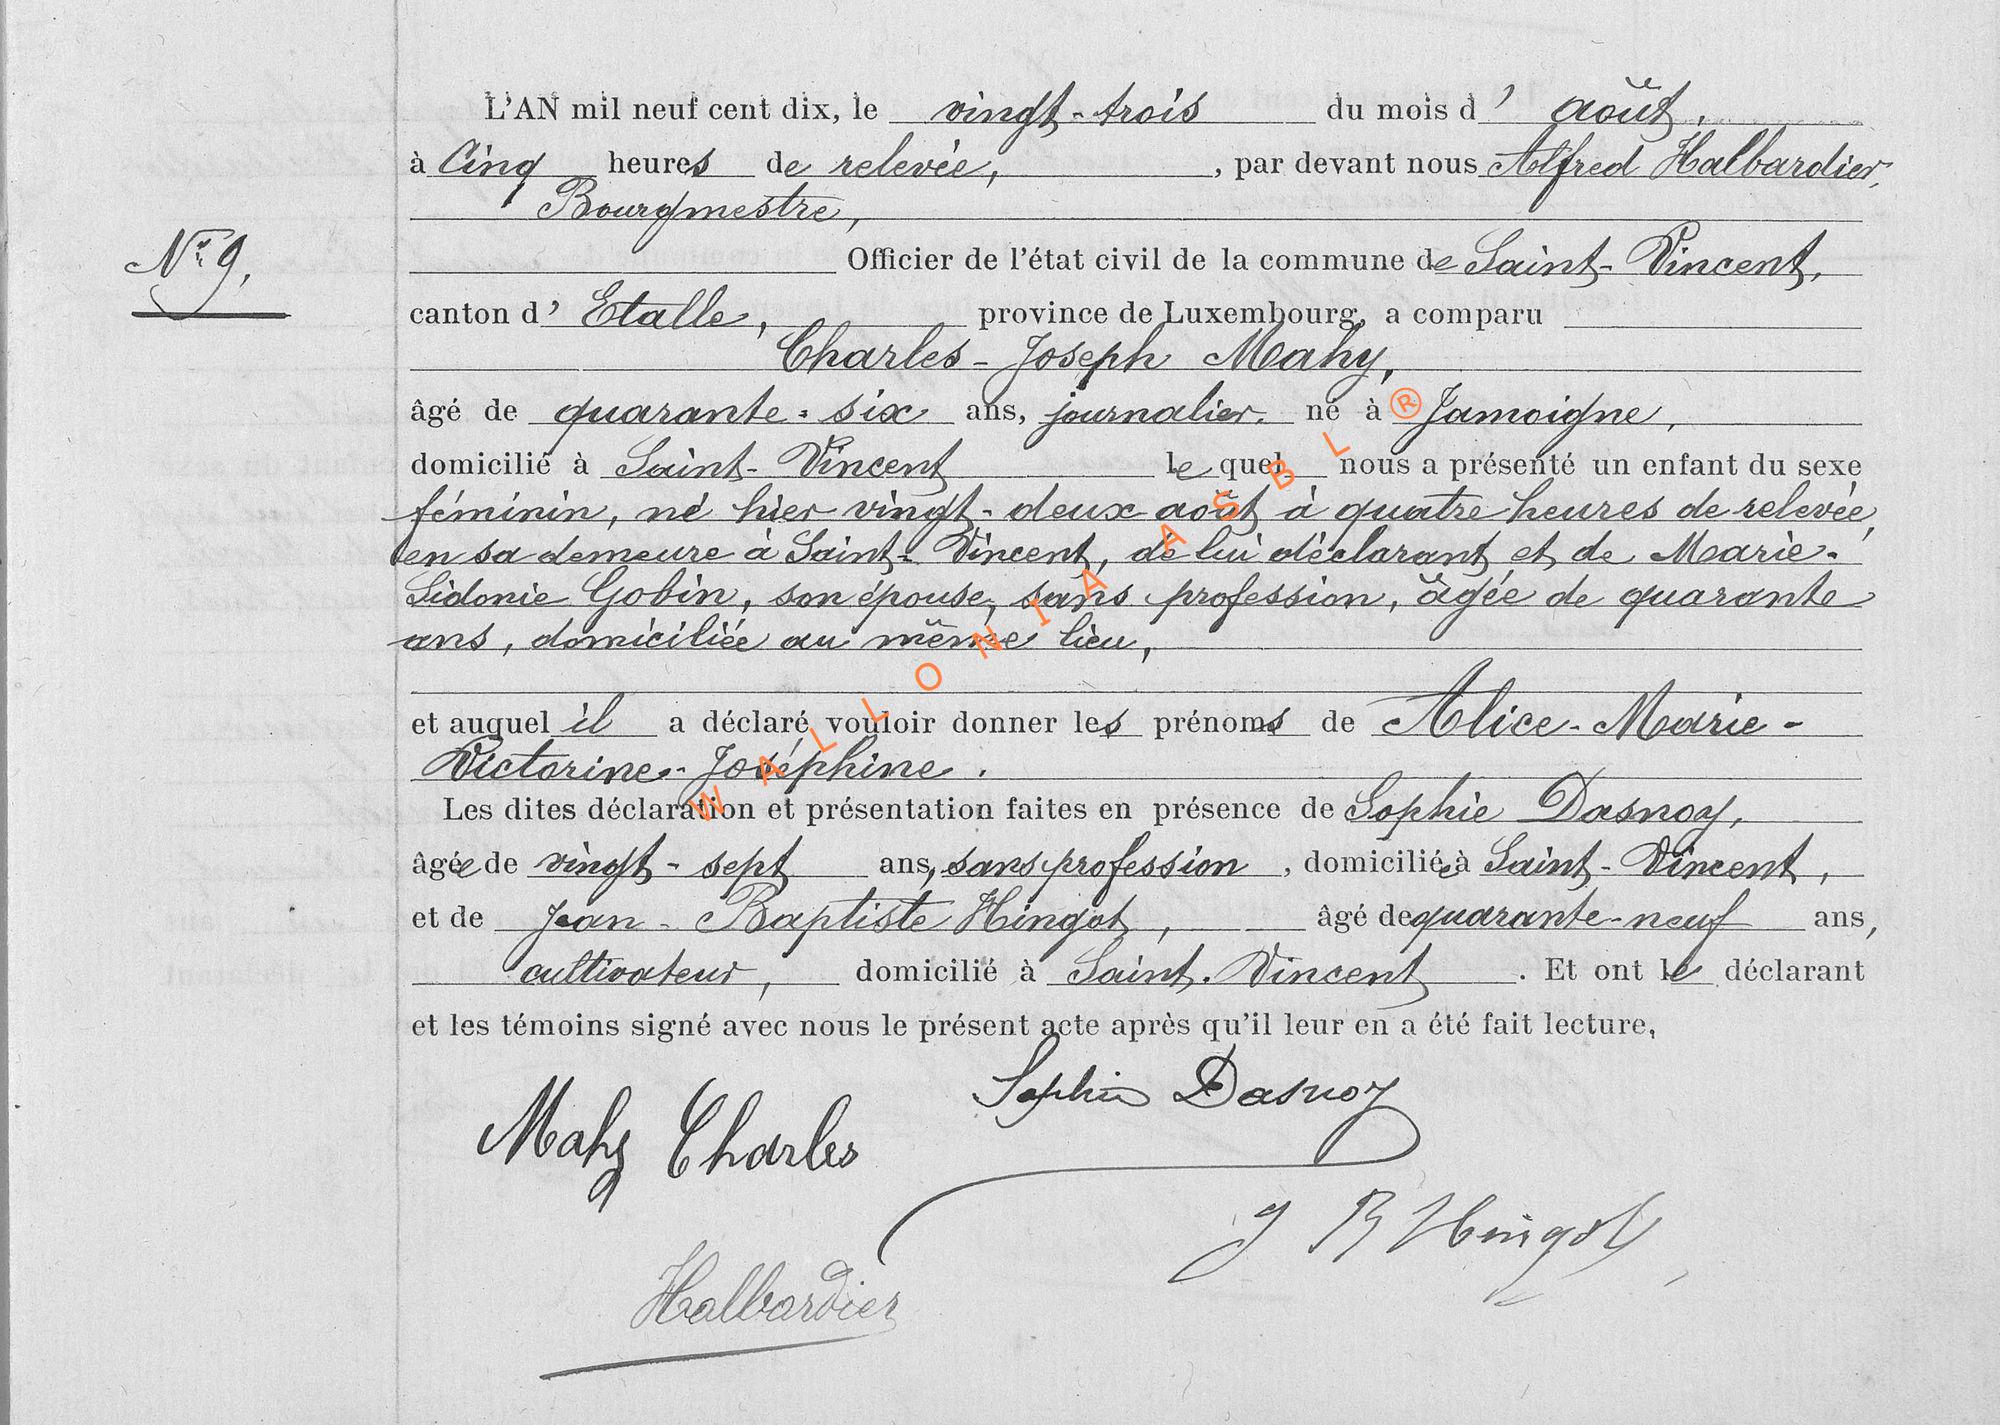 L'AN mil neuf cent dix, le vingt-trois du mois d'août,
à Cinq heures de relevée, , par devant nous Alfred Halbardier,
Bourgmestre,
N° 9.
Officier de l'état civil de la commune de Saint-Vincent,
canton d'Etalle, province de Luxembourg, a comparu
Charles-Joseph Mahy,
âgé de quarante-six ans, journalier, né à Jamoigne,
domicilié à Saint-Vincent lequel nous a présenté un enfant du sexe
féminin, né hier vingt-deux août à quatre heures de relevée,
en sa demeure à Saint-Vincent, de lui déclarant et de Marie-
Sidonie Gobin, son épouse, sans profession, âgée de quarante
ans, domiciliée au même lieu,
et auquel il a déclaré vouloir donner les prénoms de Alice-Marie-
Victorine-Joséphine.
Les dites déclaration et présentation faites en présence de Sophie Dasnoy,
âgée de vingt-sept ans, sans profession, domiciliée à Saint-Vincent,
et de Jean-Baptiste Hingot, âgé de quarante-neuf ans,
cultivateur, domicilié à Saint-Vincent. Et ont le déclarant
et les témoins signé avec nous le présent acte après qu'il leur en a été fait lecture,
Sophie Dasnoy
Mahy Charles
J B Hingot
Halbardier
WALLONIA ASBL ®